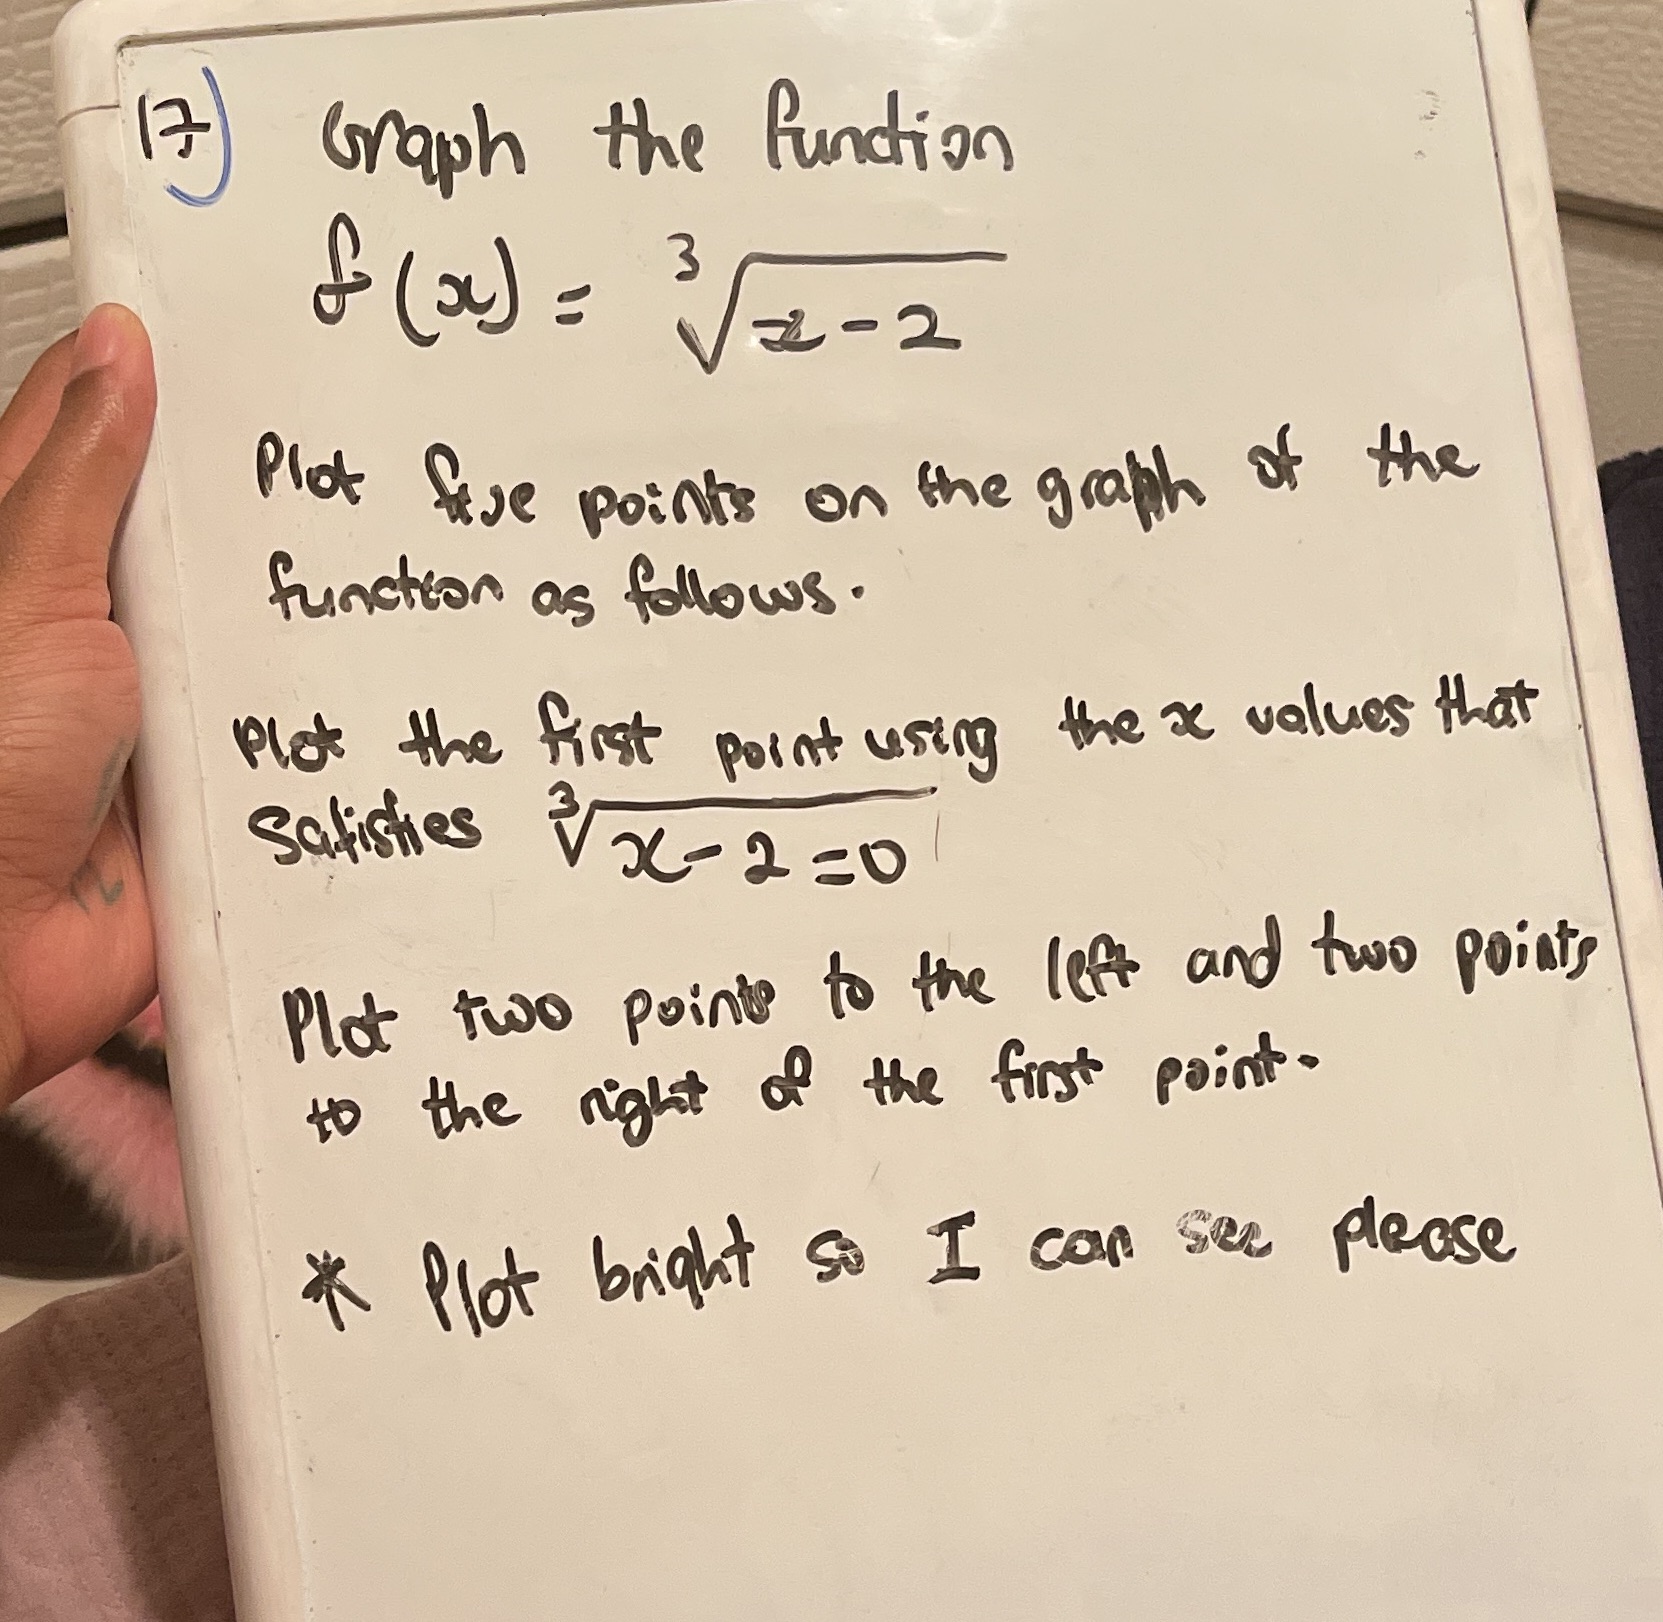 17) Graph the function
f(x) = ∛(x-2)
Plot five points on the graph of the
function as follows.
Plot the first point using the x values that
Satisfies ∛(x-2=0)
Plot two points to the left and two points
to the right of the first point.
* Plot bright so I can see please